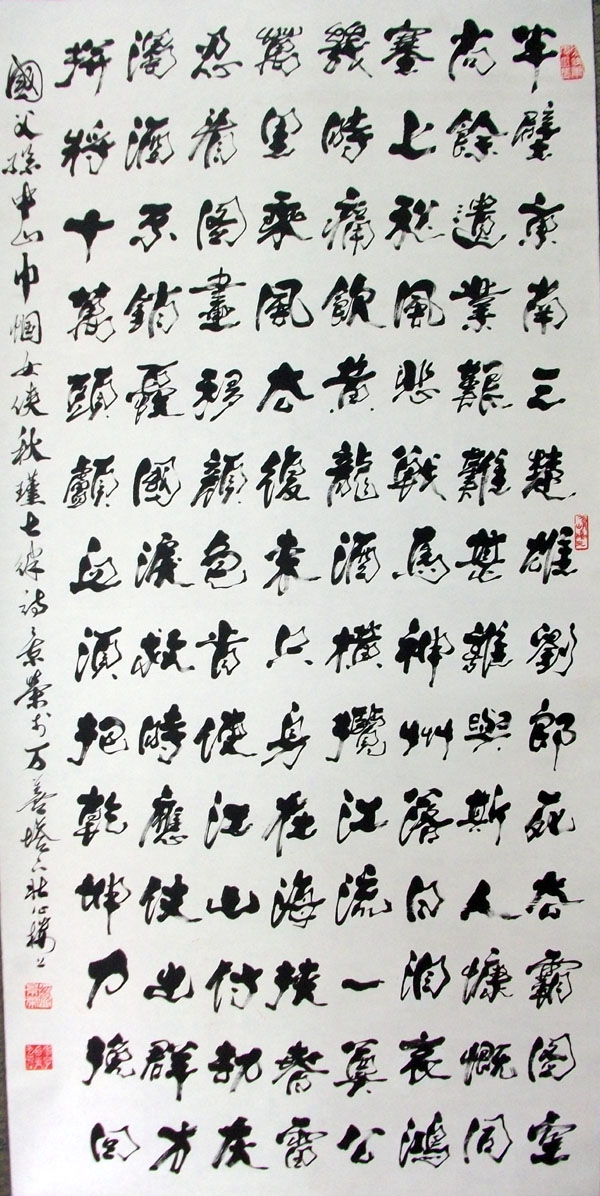 半壁東南三楚雄劉郎死去霸圖空
尚餘遺業艱難甚誰與斯人慷慨同
塞上秋風悲戰馬神州落日泪哀鴻
幾時痛飲黃龍酒橫攬江流一奠公
萬里乘風去復來只身在海挾春雷
忍看圖畫移顏色肯使江山付劫灰
濁酒不銷憂國淚救時應仗出群才
拼將十萬頭顱血須把乾坤力挽回
國父孫中山巾幗女俠秋瑾七律詩景榮於万善塔下壯心樓上